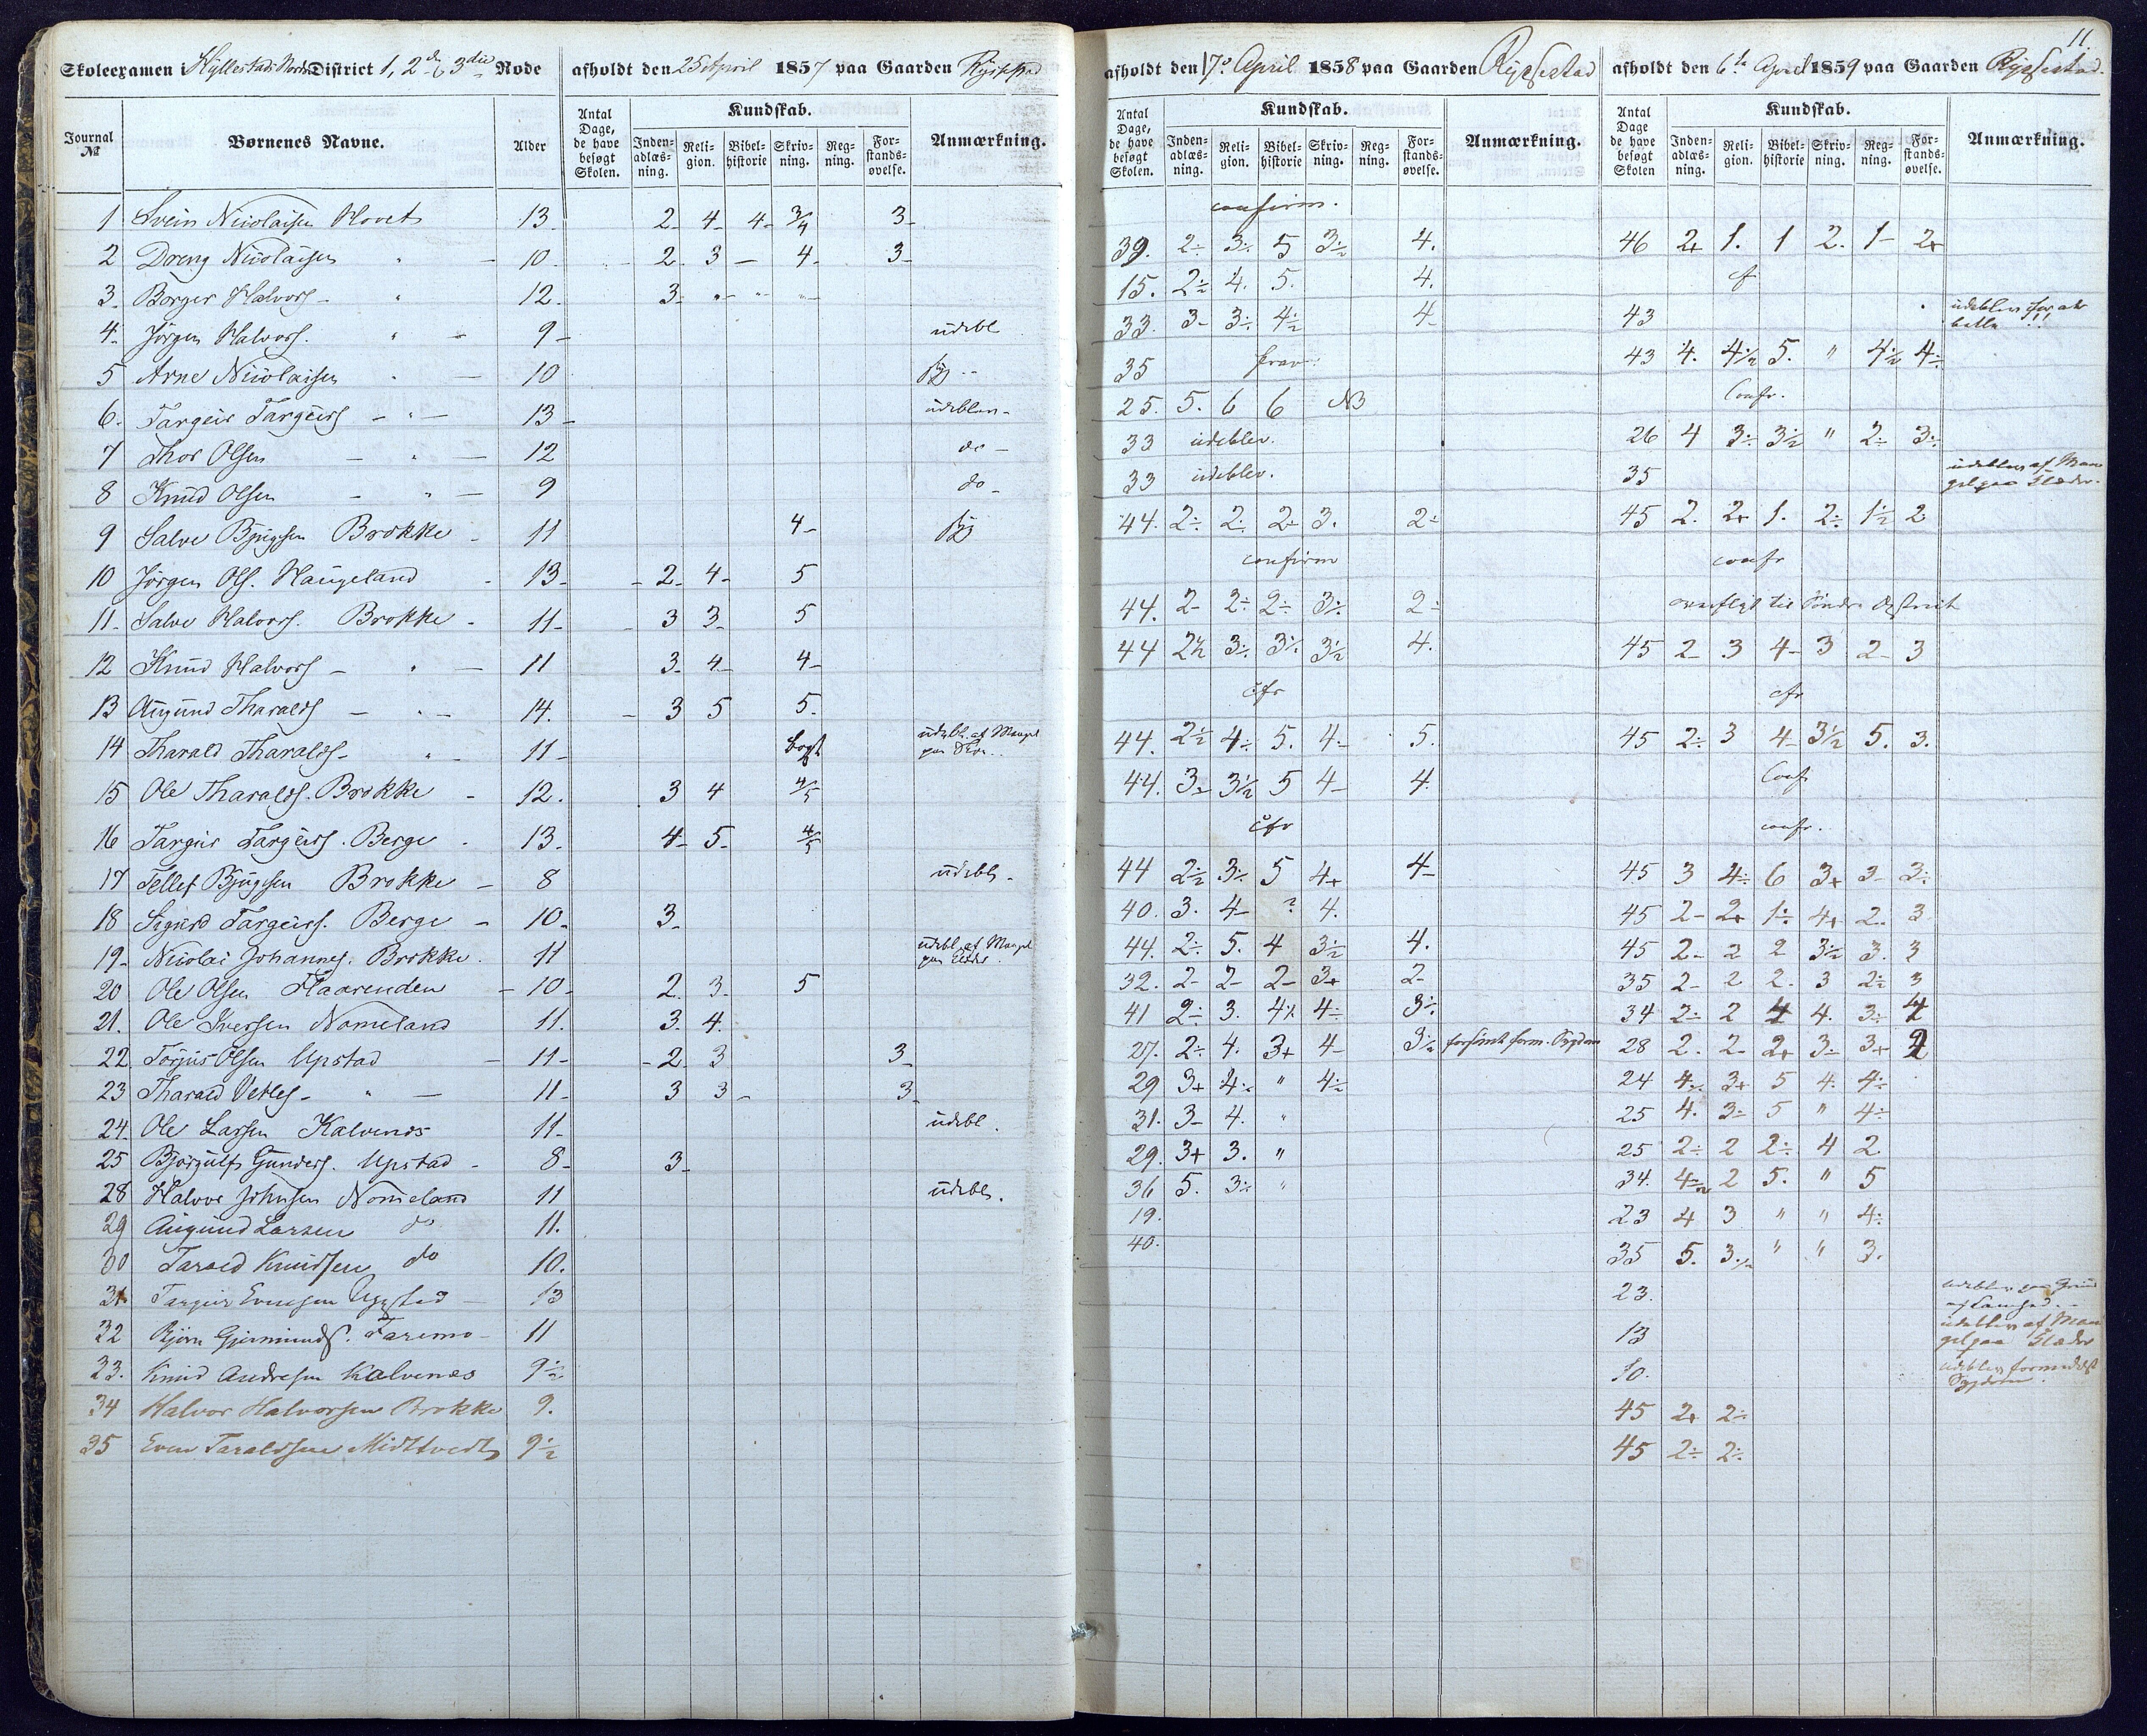 Skoleexamen i Hyllestad Nordre District 1, 2den & 3die Rode afholdt den 25 April 1857 paa Gaarden Rysstad
Journal № Børnenes Navne. Alder Antal Dage, de have besøgt Skolen. Kundskab. Inden-adlæs-ning. Reli-gion. Bibel-historie Skriv-ning. Reg-ning. For-stands-øvelse. Anmærkning.
1 Svein Nicolaisen Hovet 13 2 4 4 3/4 3
2 Dreng Nicolaisen " 10 2 3 – 4 3
3 Borger Halvors. " 12 3 " " "
4 Jörgen Halvors. " 9 udebl
5 Arne Nicolaisen " 10
6. Targeir Targeirs " 13 udeblev
7 Thor Olsen " 12 do
8 Knud Olsen " 9 do
9 Salve Bjugsen Brokke 11 4
10 Jörgen Ols. Haugeland 13 2 4 5
11 Salve Halvors. Brokke 11 3 3 5
12 Knud Halvors " 11 3 4 4
13 Augund Tharalds " 14. 3 5 5.
14 Tharald Tharalds " 11 udebl. af Mangel paa
15 Ole Tharalds. Brokke 12. 3 4 4/5
16 Targeir Targeirs. Berge 13 4 5 4/5
17 Tellef Bjugsen Brokke 8 udebl.
18 Sigurd Targeirs. Berge 10 3
19 Nicolai Johannes. Brokke 11 udebl. af Mangel paa Klæder.
20 Ole Olsen Flaarenden 10 2. 3. 5
21. Ole Iversen Nomeland 11. 3. 4.
22 Torjus Olsen Upstad 11 2 3 3
23 Tharald Vetles " 11 3 3 3
24. Ole Larsen Kalvenes 11 udebl.
25 Bjorgulf Gunders. Upstad 8 3
28 Halvor Johnsen Nomeland 11 udebl.
29 Augund Larsen do 11.
30 Tarald Knudsen do 10.
31 Targeir Evensen Upstad 13
32 Björn Gjermunds. Faremo 11
33. Knud Andresen Kalvenes 9½
34 Halvor Halvorsen Brokke 9.
35 Even Taraldsen Midttvedt 9½
11.
afholdt den 17de April 1858 paa Gaarden Ryssestad afholdt den 6te April 1859 paa Gaarden Ryssestad.
Antal Dage, de have besøgt Skolen. Kundskab. Inden-adlæs-ning. Reli-gion. Bibel-historie Skriv-ning. Reg-ning. For-stands-øvelse. Anmærkning. Antal Dage de have besøgt Skolen Kundskab. Inden-adlæs-ning. Reli-gion. Bibel-historie Skriv-ning. Reg-ning. For-stands-øvelse. Anmærkning.
confirm.
39. 2÷ 3÷ 5 3÷ 4. 46 2+ 1. 1 2. 1- 2+
15. 2÷ 4. 5. 4. cf
33. 3- 3÷ 4½ 4- 43 udeblev for at betle!!
35 frav. 43 4. 4½ 5. " 4½ 4÷
25. 5. 6 6 NB Confr.
33 udeblev. 26 4 3÷ 3½ " 2÷ 3÷
33 udeblev. 35 udeblev af Mangel paa Klæder.
44. 2÷ 2÷ 2÷ 3. 2÷ 45 2. 2+ 1. 2÷ 1½ 2
confirm confr
44. 2- 2÷ 2÷ 3÷ 2÷ overflyt til Söndre District
44 2½ 3÷ 3÷ 3½ 4. 45 2- 3 4- 3 2- 3
cfr cfr
44. 2½ 4÷ 5. 4÷ 5. 45 2÷ 3 4- 3½ 5. 3.
44. 3- 3½ 5 4- 4. Confr
cfr confr.
44 2½ 3÷ 5 4+ 4- 45 3 4÷ 6 3+ 3- 3÷
40. 3. 4- ? 4. 45 2- 2+ 1÷ 4+ 2. 3
44. 2÷ 5. 4 3½ 4. 45 2- 2 2 3½ 3. 3
32. 2- 2- 2- 3+ 2- 35 2- 2 2. 3 2÷ 3
41 2÷ 3. 4½ 4÷ 3÷ 34 2÷ 2 4 4. 3÷ 4
27. 2÷ 4. 3+ 4- 3½ forsömt form. Sygdom 28 2. 2- 2+ 3÷ 3+ 2
29 3+ 4÷ " 4½ 24 4÷ 3+ 5 4. 4÷
31. 3- 4. " 25 4. 3÷ 5 " 4÷
29. 3+ 3. " 25 2÷ 2 2÷ 4 2
36 5. 3÷ " 34. 4½ 2 5. " 5
19. 23 4 3 " " 4÷
40. 35 5. 3½ " " 3.
23. udeblev paa Grund af
13 udeblev af Mangel paa Klæder
10. udeblev formedelst Sygdom.
45 2+ 2÷
45 2÷ 2÷